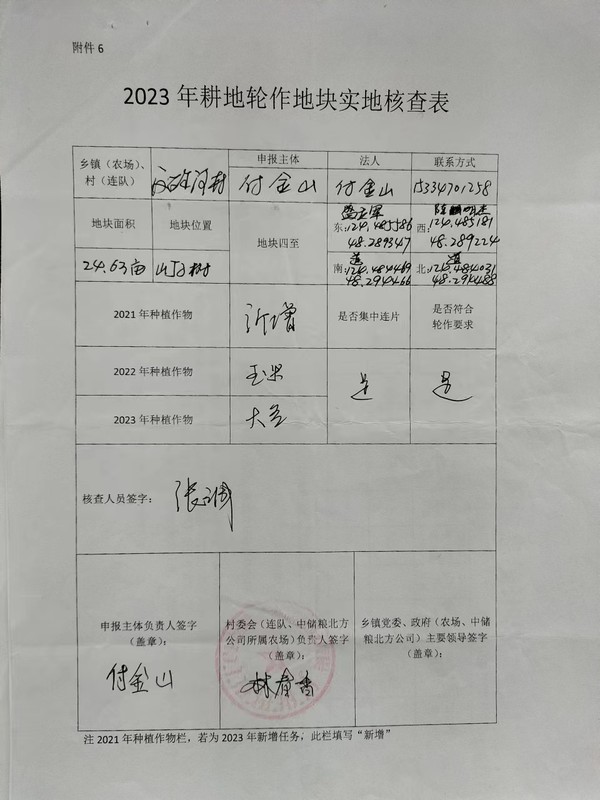 附件 6
2023 年耕地轮作地块实地核查表
乡镇（农场）、
村（连队）
申报主体
法人
联系方式
付金山
付金山
15334701258
地块面积
地块位置
地块四至
东:124.485586
48.289347
西:124.485181
48.289224
24.63亩
南:道
124.484469
48.294466
北:道
124.484031
48.294488
2021 年种植作物
新增
是否集中连片
是否符合
轮作要求
2022 年种植作物
玉米
是
是
2023 年种植作物
大豆
核查人员签字：
申报主体负责人签字
（盖章）：
付金山
村委会（连队、中储粮北方
公司所属农场）负责人签字
（盖章）：
乡镇党委、政府（农场、中储
粮北方公司）主要领导签字
（盖章）：
注 2021 年种植作物栏，若为 2023 年新增任务，此栏填写“新增”